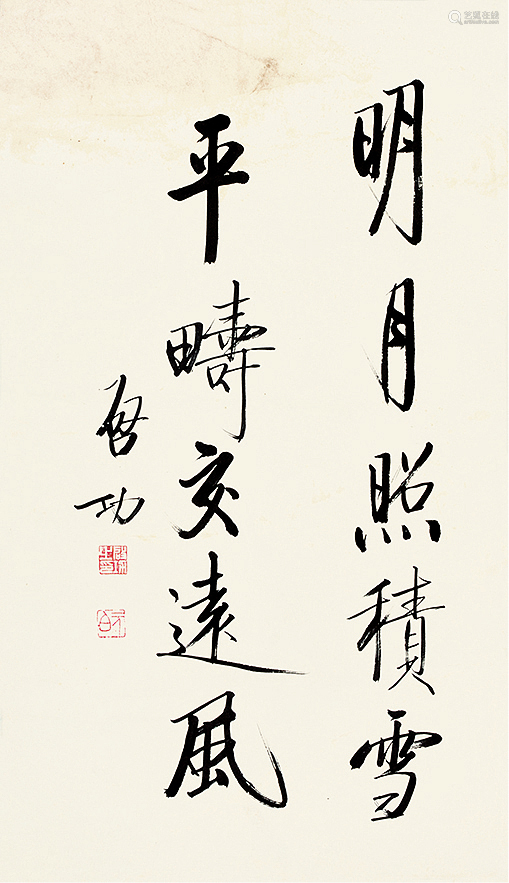 明月照積雪
平疇交遠風
啓功
艺狐在线